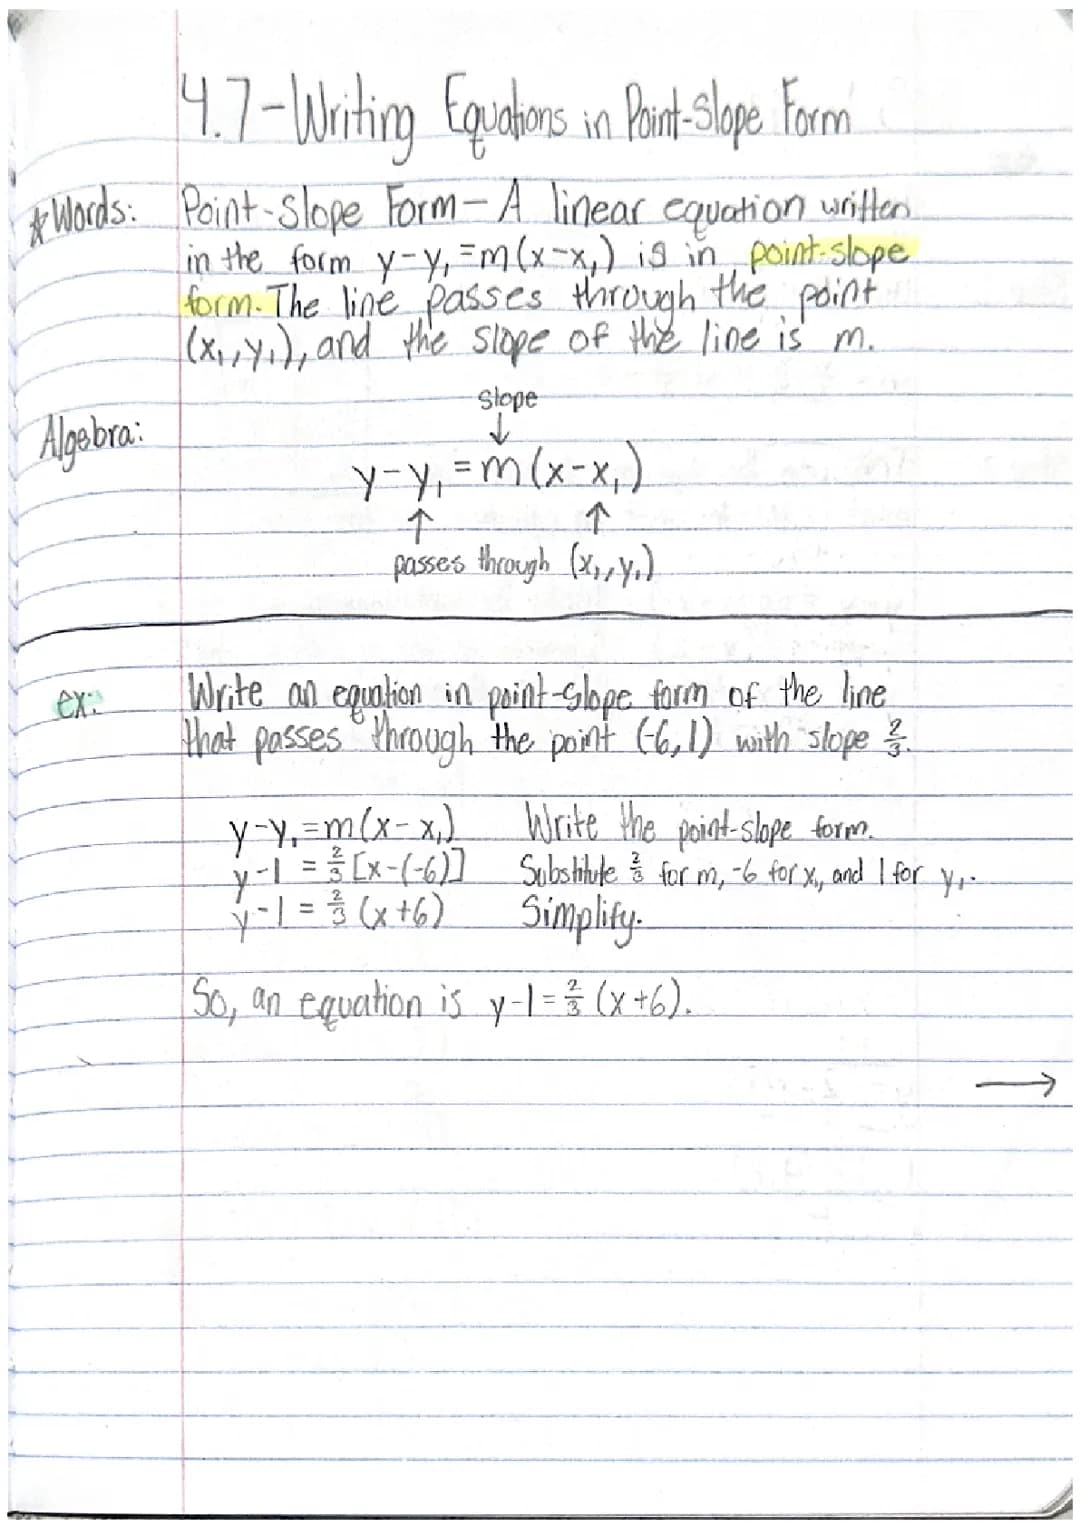 4.7-Writing Equations in Point-Slope Form
*Words: Point-Slope Form- A linear equation written
in the form y-y₁=m(x-x₁) is in point-slope
form. The line passes through the point
(x₁,y₁), and the slope of the line is m.
slope
↓
Algebra:
y-y₁=m(x-x₁)
↑ ↑
passes through (x₁,y₁)
ex: Write an equation in point-slope form of the line
that passes through the point (-6,1) with slope 2/3.
y-y₁=m(x-x₁) Write the point-slope form.
y-1=2/3[x-(-6)] Substitute 2/3 for m, -6 for x₁, and 1 for y₁.
y-1=2/3(x+6) Simplify.
So, an equation is y-1=2/3(x+6).
→